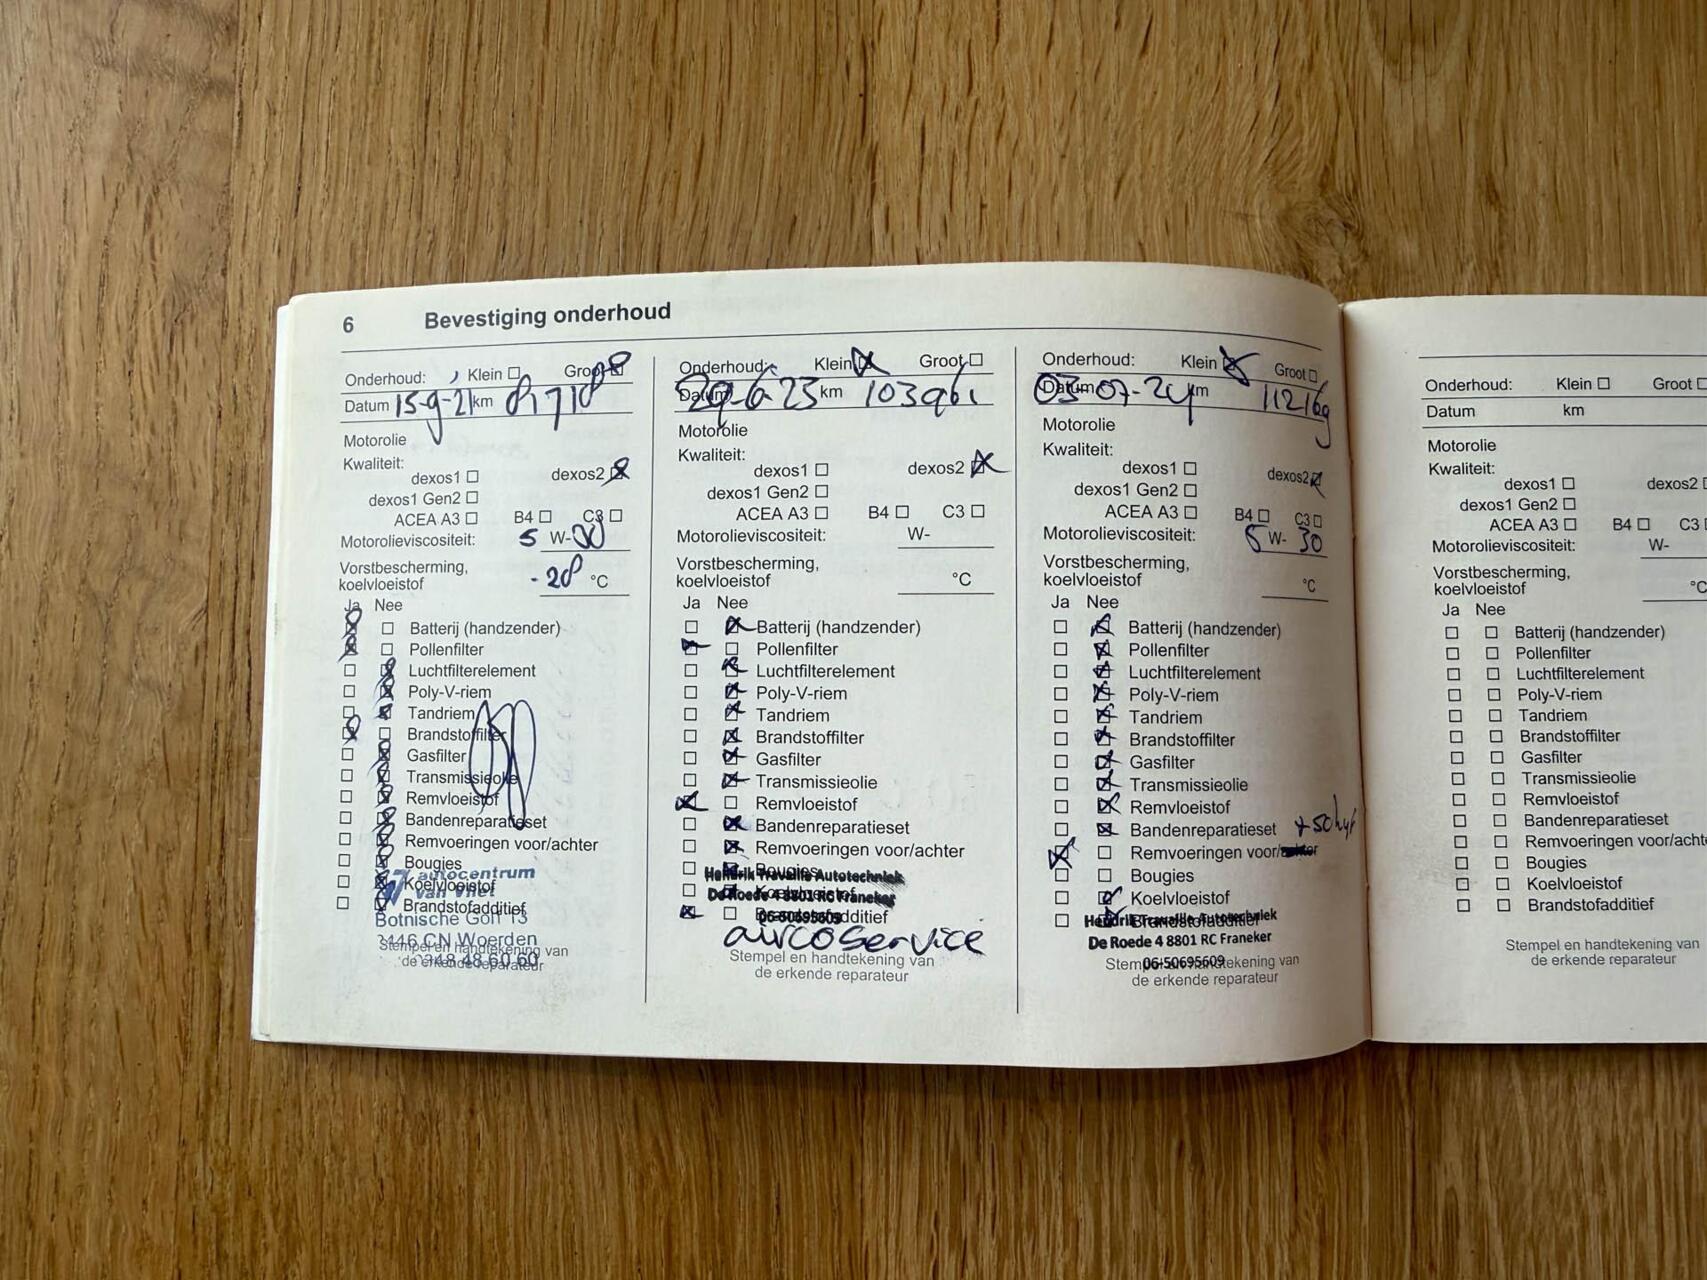 6 Bevestiging onderhoud
Onderhoud: Klein Groot
Datum 15-9-21 km
Motorolie
Kwaliteit:
dexos1 dexos2
dexos1 Gen2
ACEA A3 B4 C3
Motorolieviscositeit: 5 W-
Vorstbescherming,
koelvloeistof -28 °C
Ja Nee
Batterij (handzender)
Pollenfilter
Luchtfilterelement
Poly-V-riem
Tandriem
Brandstoffilter
Gasfilter
Transmissieolie
Remvloeistof
Bandenreparatieset
Remvoeringen voor/achter
Bougies
autocentrum
Koelvloeistof
van Vliet
Brandstofadditief
Botnische Golf 13
3446 CN Woerden
Stempel en handtekening van
0348 48 60 60
de erkende reparateur
Onderhoud: Klein Groot
Datum 29-6-23 km 103961
Motorolie
Kwaliteit:
dexos1 dexos2
dexos1 Gen2
ACEA A3 B4 C3
Motorolieviscositeit: W-
Vorstbescherming,
koelvloeistof °C
Ja Nee
Batterij (handzender)
Pollenfilter
Luchtfilterelement
Poly-V-riem
Tandriem
Brandstoffilter
Gasfilter
Transmissieolie
Remvloeistof
Bandenreparatieset
Remvoeringen voor/achter
Bougies
Hendrik Travaille Autotechniek
Koelvloeistof
De Roede 4 8801 RC Franeker
Brandstofadditief
06-50695609
aircoservice
Stempel en handtekening van
de erkende reparateur
Onderhoud: Klein Groot
Datum 03-07-24 km 112169
Motorolie
Kwaliteit:
dexos1 dexos2
dexos1 Gen2
ACEA A3 B4 C3
Motorolieviscositeit: 5 W- 30
Vorstbescherming,
koelvloeistof °C
Ja Nee
Batterij (handzender)
Pollenfilter
Luchtfilterelement
Poly-V-riem
Tandriem
Brandstoffilter
Gasfilter
Transmissieolie
Remvloeistof
Bandenreparatieset
Remvoeringen voor/achter
Bougies
Koelvloeistof
Brandstofadditief
Hendrik Travaille Autotechniek
De Roede 4 8801 RC Franeker
06-50695609
Stempel en handtekening van
de erkende reparateur
Onderhoud: Klein Groot
Datum km
Motorolie
Kwaliteit:
dexos1 dexos2
dexos1 Gen2
ACEA A3 B4 C3
Motorolieviscositeit: W-
Vorstbescherming,
koelvloeistof °C
Ja Nee
Batterij (handzender)
Pollenfilter
Luchtfilterelement
Poly-V-riem
Tandriem
Brandstoffilter
Gasfilter
Transmissieolie
Remvloeistof
Bandenreparatieset
Remvoeringen voor/achte
Bougies
Koelvloeistof
Brandstofadditief
Stempel en handtekening van
de erkende reparateur